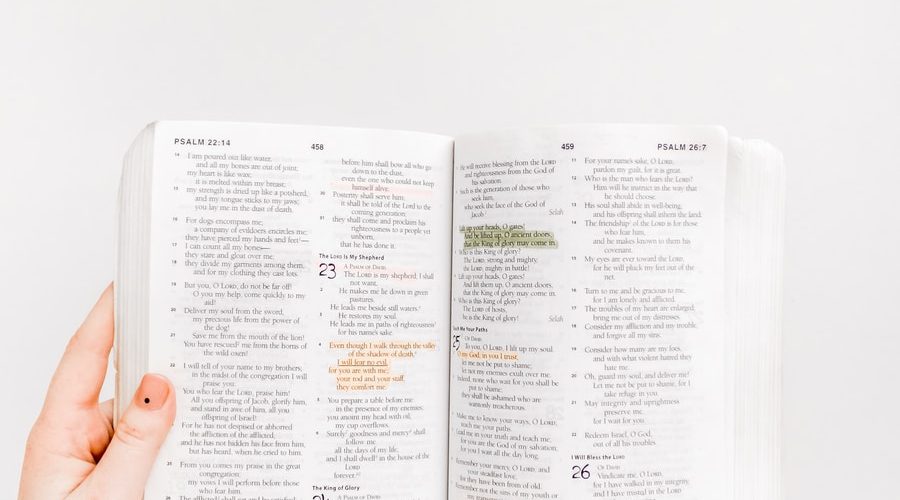 PSALM 22:14
458
14 I am poured out like water,
and all my bones are out of joint;
my heart is like wax;
it is melted within my breast;
15 my strength is dried up like a potsherd,
and my tongue sticks to my jaws;
you lay me in the dust of death.
16 For dogs encompass me;
a company of evildoers encircles me;
they have pierced my hands and feet—
17 I can count all my bones—
they stare and gloat over me;
18 they divide my garments among them,
and for my clothing they cast lots.
19 But you, O LORD, do not be far off!
O you my help, come quickly to my
aid!
20 Deliver my soul from the sword,
my precious life from the power of
the dog!
21 Save me from the mouth of the lion!
You have rescued me from the horns of
the wild oxen!
22 I will tell of your name to my brothers;
in the midst of the congregation I will
praise you:
You who fear the LORD, praise him!
All you offspring of Jacob, glorify him,
and stand in awe of him, all you
offspring of Israel!
For he has not despised or abhorred
the affliction of the afflicted,
and he has not hidden his face from him,
but has heard, when he cried to him.
25 From you comes my praise in the great
congregation;
my vows I will perform before those
who fear him.
26 The afflicted shall eat and be satisfied;
before him shall bow all who go
down to the dust,
even the one who could not keep
himself alive.
30 Posterity shall serve him;
it shall be told of the Lord to the
coming generation;
31 they shall come and proclaim his
righteousness to a people yet
unborn,
that he has done it.
The LORD Is My Shepherd
23 A PSALM OF DAVID.
The LORD is my shepherd; I shall
not want.
2 He makes me lie down in green
pastures.
He leads me beside still waters.
3 He restores my soul.
He leads me in paths of righteousness
for his name's sake.
4 Even though I walk through the valley
of the shadow of death,
I will fear no evil,
for you are with me;
your rod and your staff,
they comfort me.
5 You prepare a table before me
in the presence of my enemies;
you anoint my head with oil;
my cup overflows.
6 Surely goodness and mercy shall
follow me
all the days of my life,
and I shall dwell in the house of the
LORD
forever.
The King of Glory
24 A PSALM OF DAVID.
459
PSALM 26:7
He will receive blessing from the LORD
and righteousness from the God of
his salvation.
Such is the generation of those who
seek him,
who seek the face of the God of
Jacob.
Selah
Lift up your heads, O gates!
And be lifted up, O ancient doors,
that the King of glory may come in.
Who is this King of glory?
The LORD, strong and mighty,
the LORD, mighty in battle!
Lift up your heads, O gates!
And lift them up, O ancient doors,
that the King of glory may come in.
Who is this King of glory?
The LORD of hosts,
he is the King of glory!
Selah
Teach Me Your Paths
25 OF DAVID.
To you, O LORD, I lift up my soul.
O my God, in you I trust;
let me not be put to shame;
let not my enemies exult over me.
Indeed, none who wait for you shall be
put to shame;
they shall be ashamed who are
wantonly treacherous.
Make me to know your ways, O LORD;
teach me your paths.
Lead me in your truth and teach me,
for you are the God of my salvation;
for you I wait all the day long.
Remember your mercy, O LORD, and
your steadfast love,
for they have been from of old.
Remember not the sins of my youth or
11 For your name's sake, O LORD,
pardon my guilt, for it is great.
12 Who is the man who fears the LORD?
Him will he instruct in the way that
he should choose.
13 His soul shall abide in well-being,
and his offspring shall inherit the land.
14 The friendship of the LORD is for those
who fear him,
and he makes known to them his
covenant.
15 My eyes are ever toward the LORD,
for he will pluck my feet out of the
net.
16 Turn to me and be gracious to me,
for I am lonely and afflicted.
17 The troubles of my heart are enlarged;
bring me out of my distresses.
18 Consider my affliction and my trouble,
and forgive all my sins.
19 Consider how many are my foes,
and with what violent hatred they
hate me.
20 Oh, guard my soul, and deliver me!
Let me not be put to shame, for I
take refuge in you.
21 May integrity and uprightness
preserve me,
for I wait for you.
22 Redeem Israel, O God,
out of all his troubles.
I Will Bless the LORD
26 OF DAVID.
Vindicate me, O LORD,
for I have walked in my integrity,
and I have trusted in the LORD